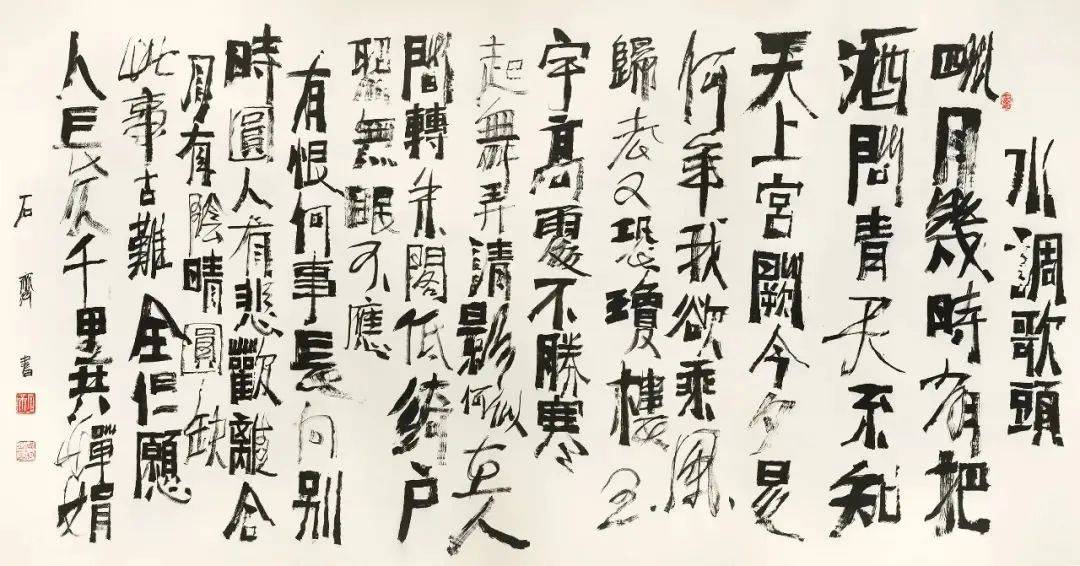 水調歌頭
明月幾時有把
酒問青天不知
天上宮闕今夕是
何年我欲乘風
歸去又恐瓊樓玉
宇高處不勝寒
起舞弄清影何似在人
間轉朱閣低綺户
照無眠不應
有恨何事長向别
時圓人有悲歡離合
月有陰晴圓缺
此事古難全但願
人長久千里共嬋娟
石齊書